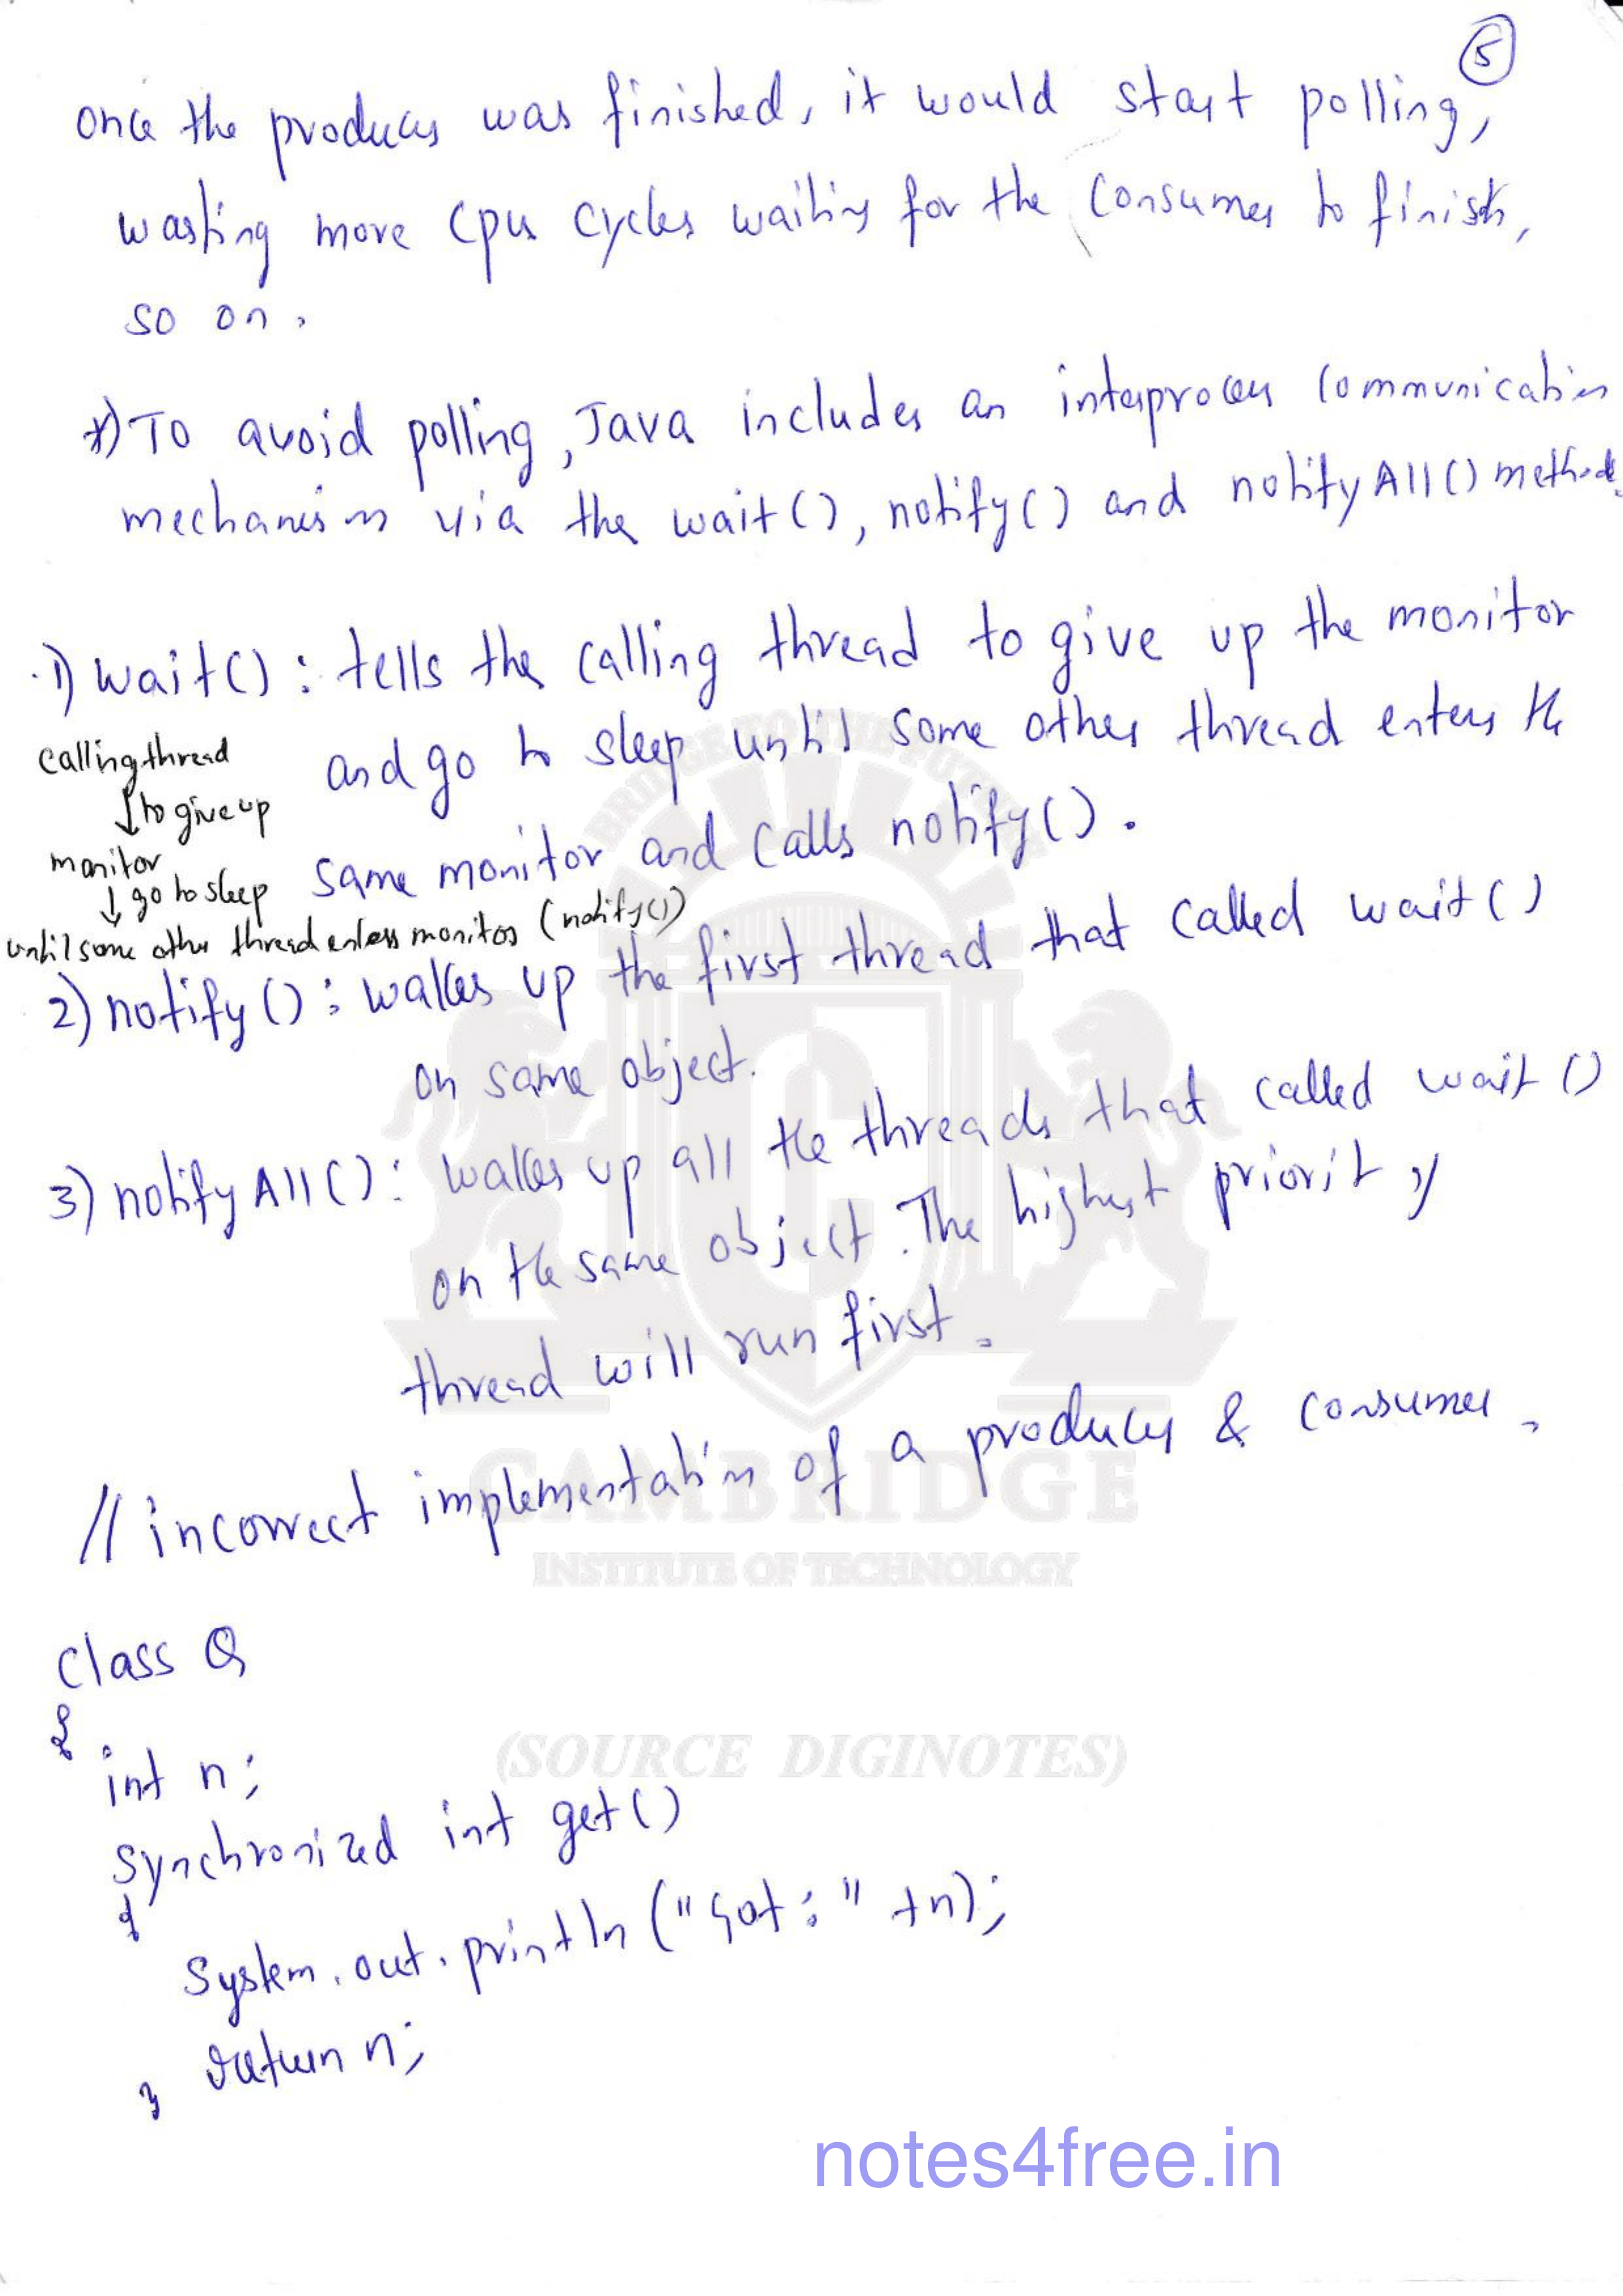 5
once the producer was finished, it would start polling,
wasting more cpu cycles waiting for the consumer to finish,
so on.
*) To avoid polling, Java includes an interprocess communication
mechanism via the wait(), notify() and notifyAll() methods.
1) wait() : tells the calling thread to give up the monitor
and go to sleep until some other thread enters the
same monitor and calls notify().
calling thread
↓ to give up
monitor
↓ go to sleep
until some other thread enters monitor (notify())
2) notify() : wakes up the first thread that called wait()
on same object.
3) notifyAll() : wakes up all the threads that called wait()
on the same object. The highest priority
thread will run first.
// incorrect implementation of a producer & consumer.
class Q
{
int n;
synchronized int get()
{
System.out.println("Got:" +n);
return n;
}
BRIDGE TO THE FUTURE
CAMBRIDGE
INSTITUTE OF TECHNOLOGY
(SOURCE DIGINOTES)
notes4free.in